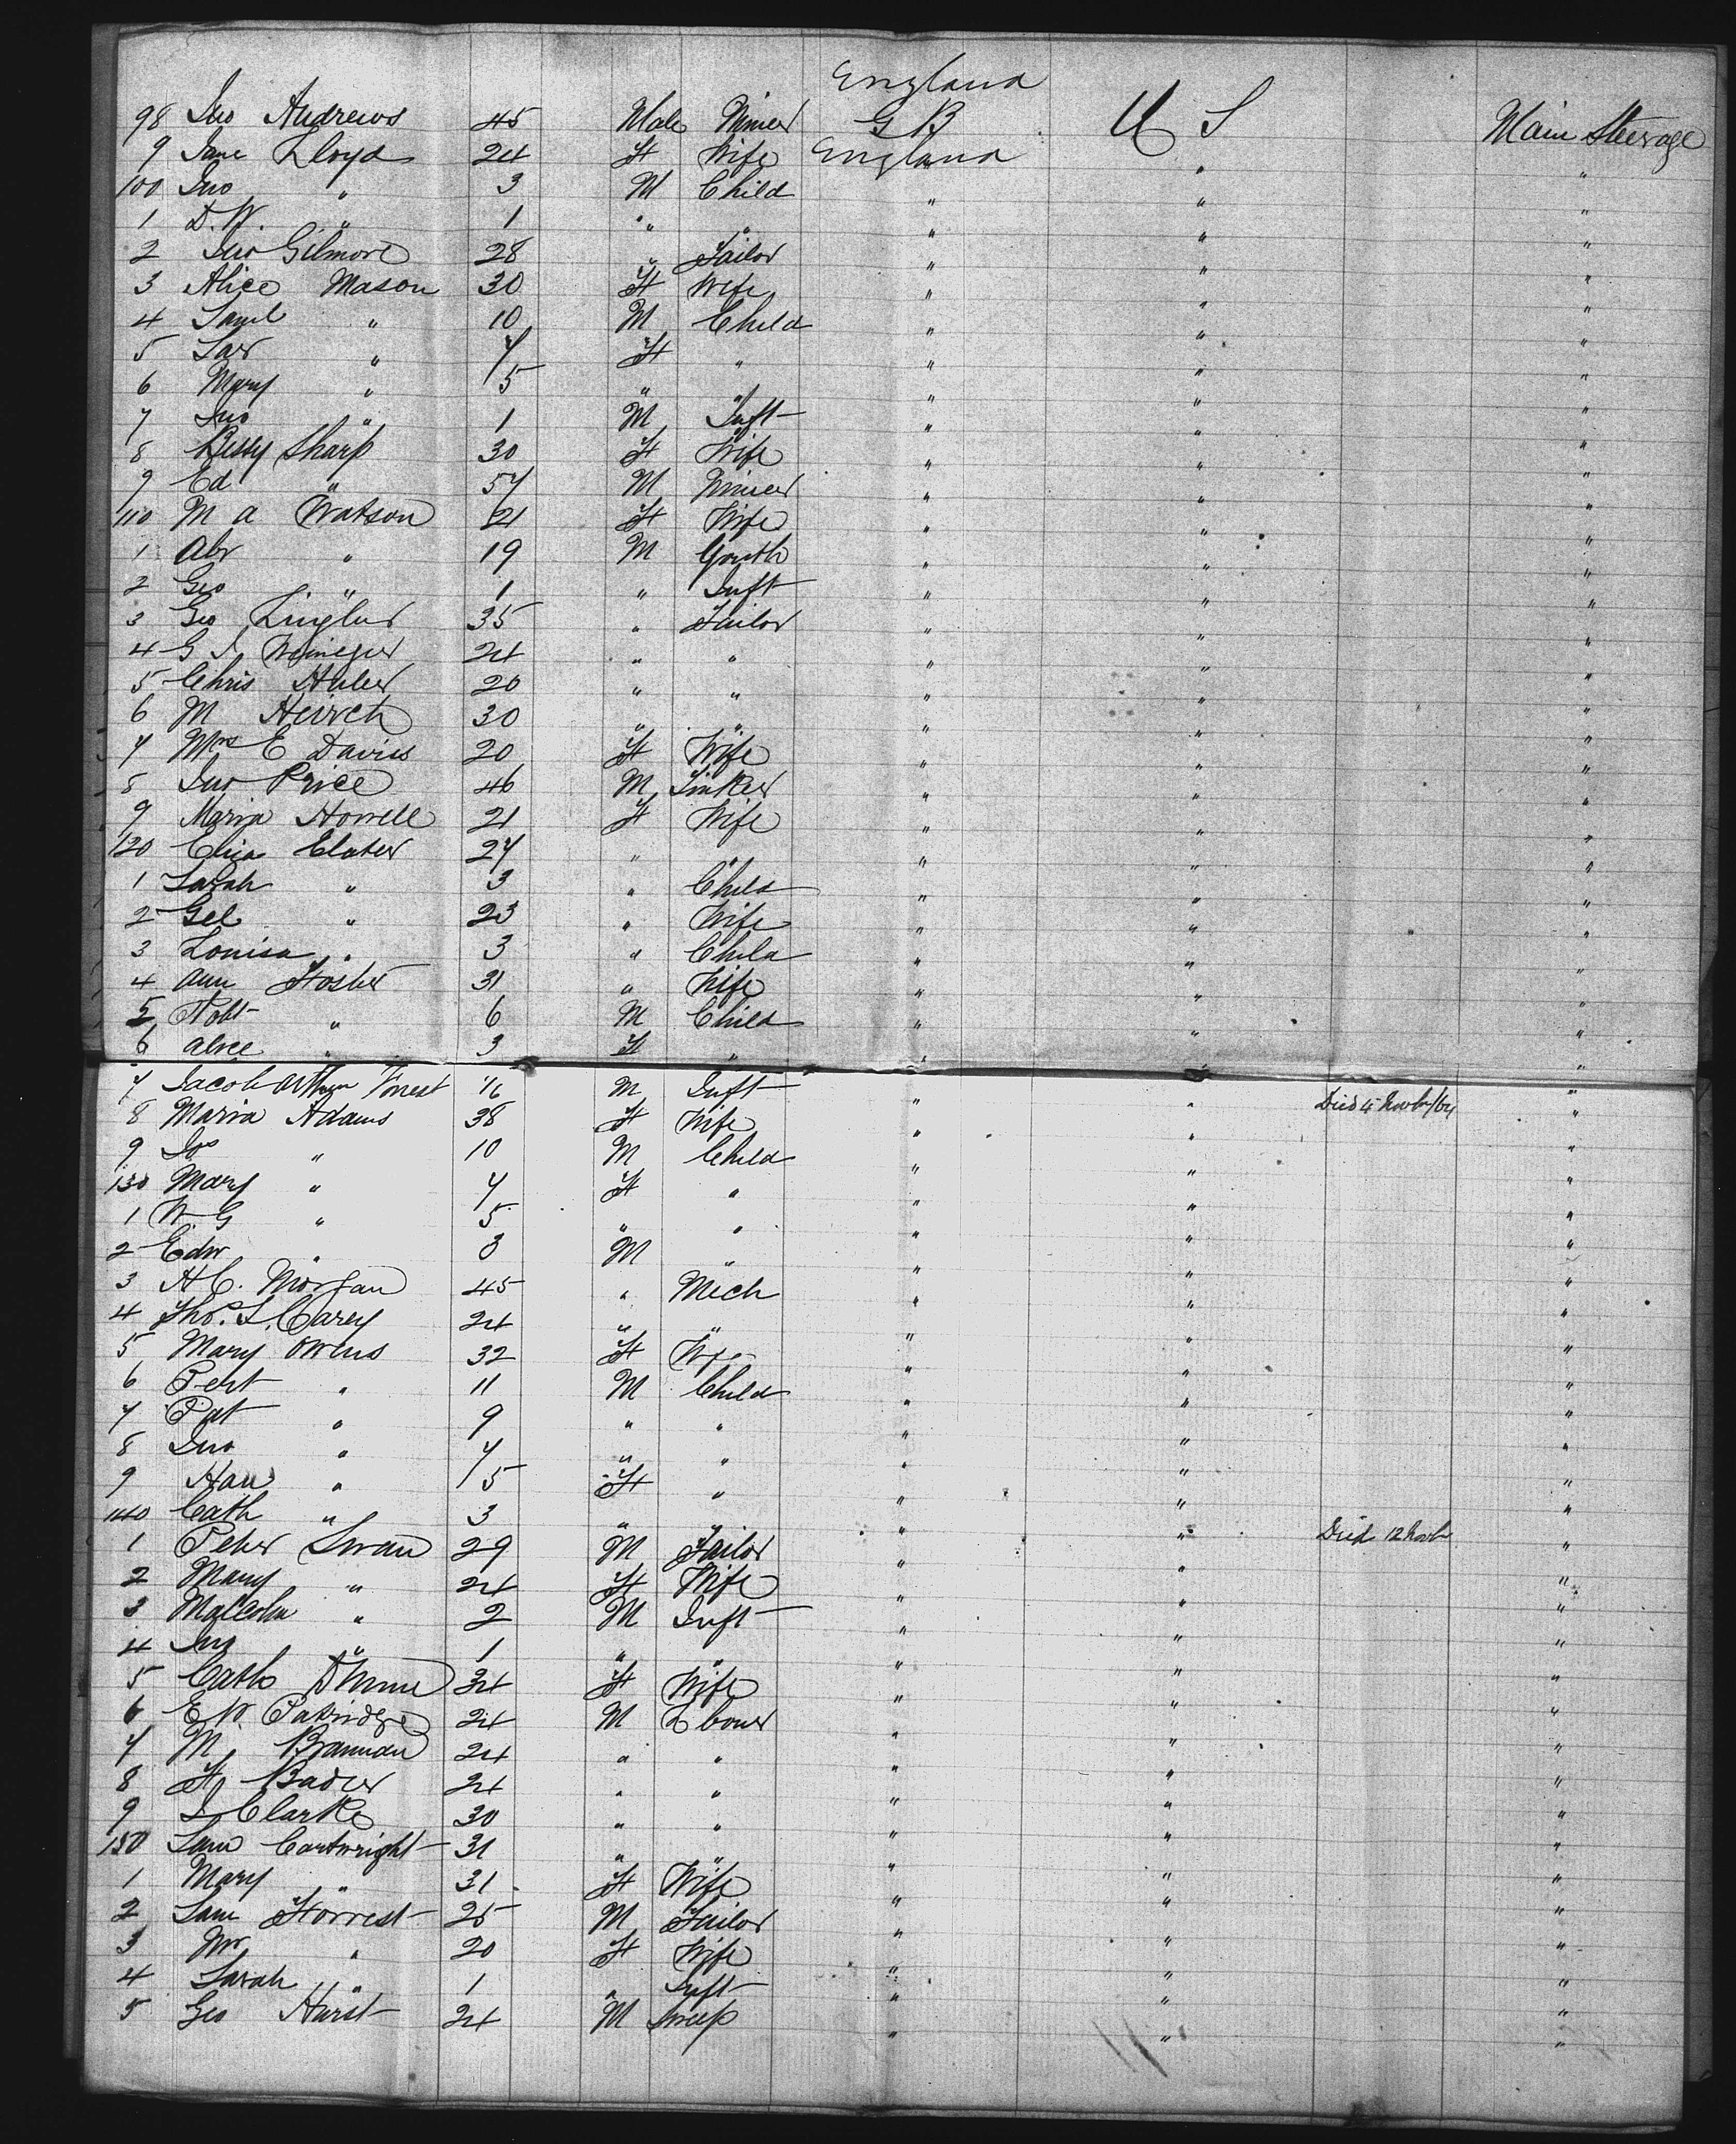 England
98 Jno Andrews 45 Male Miner G B U S Main Steerage
9 Jane Lloyd 24 F Wife England " "
100 Jno " 3 M Child " " "
1 D. W. " 1 " " " " "
2 Jno Gilmore 28 " Tailor " " "
3 Alice Mason 30 F Wife " " "
4 Saml " 10 M Child " " "
5 Sar " 7 F " " " "
6 Mary " 5 " " " " "
7 Jno " 1 M Inft " " "
8 Bessy Sharp 30 F Wife " " "
9 Ed " 57 M Miner " " "
110 M A Watson 21 F Wife " " "
1 Abr " 19 M Youth " " "
2 Geo " 1 " Inft " " "
3 Geo 35 " Tailor " " "
4 G 24 " " " " "
5 Chris Huber 20 " " " " "
6 M Heirch 30 " " " " "
7 Mrs E Daviss 20 F Wife " " "
8 Jno Price 46 M Tinker " " "
9 Maria Howell 21 F Wife " " "
120 Eliza Clater 27 " " " " "
1 Sarah " 3 " Child " " "
2 Gel " 23 " Wife " " "
3 Louisa " 3 " Child " " "
4 Ann Foster 31 " Wife " " "
5 Robt " 6 M Child " " "
6 Alice " 3 F " " " "
7 Jacob Arthur Forrest M Inft " " Died 4 Novbr/64 "
8 Maria Adams 38 F Wife " " "
9 Jos " 10 M Child " " "
130 Mary " 7 F " " " "
1 W G " 5 " " " " "
2 Edw " 3 M " " " "
3 H C. Morgan 45 " Mech " " "
4 Tho. S. Carey 24 " " " " "
5 Mary Owens 32 F Wife " " "
6 Pert " 11 M Child " " "
7 Pat " 9 " " " " "
8 Jno " 7 " " " " "
9 Han " 5 F " " " "
140 Cath " 3 " " " " "
1 Peter Swan 29 M Tailor " " Died 12 Novbr "
2 Mary " 24 F Wife " " "
3 Malcolm " 2 M Inft " " "
4 Jno " 1 " " " " "
5 Cath Dunn 34 F Wife " " "
6 E W Patridge 24 M Lbourer " " "
7 M. Brannan 24 " " " " "
8 F Bader 24 " " " " "
9 J Clarke 30 " " " " "
150 Sam Cartwright 31 " " " " "
1 Mary " 31 F Wife " " "
2 Sam Forrest 25 M Tailor " " "
3 Mr " 20 F Wife " " "
4 Sarah " 1 " Inft " " "
5 Geo Hurst 24 M Sweep " " "